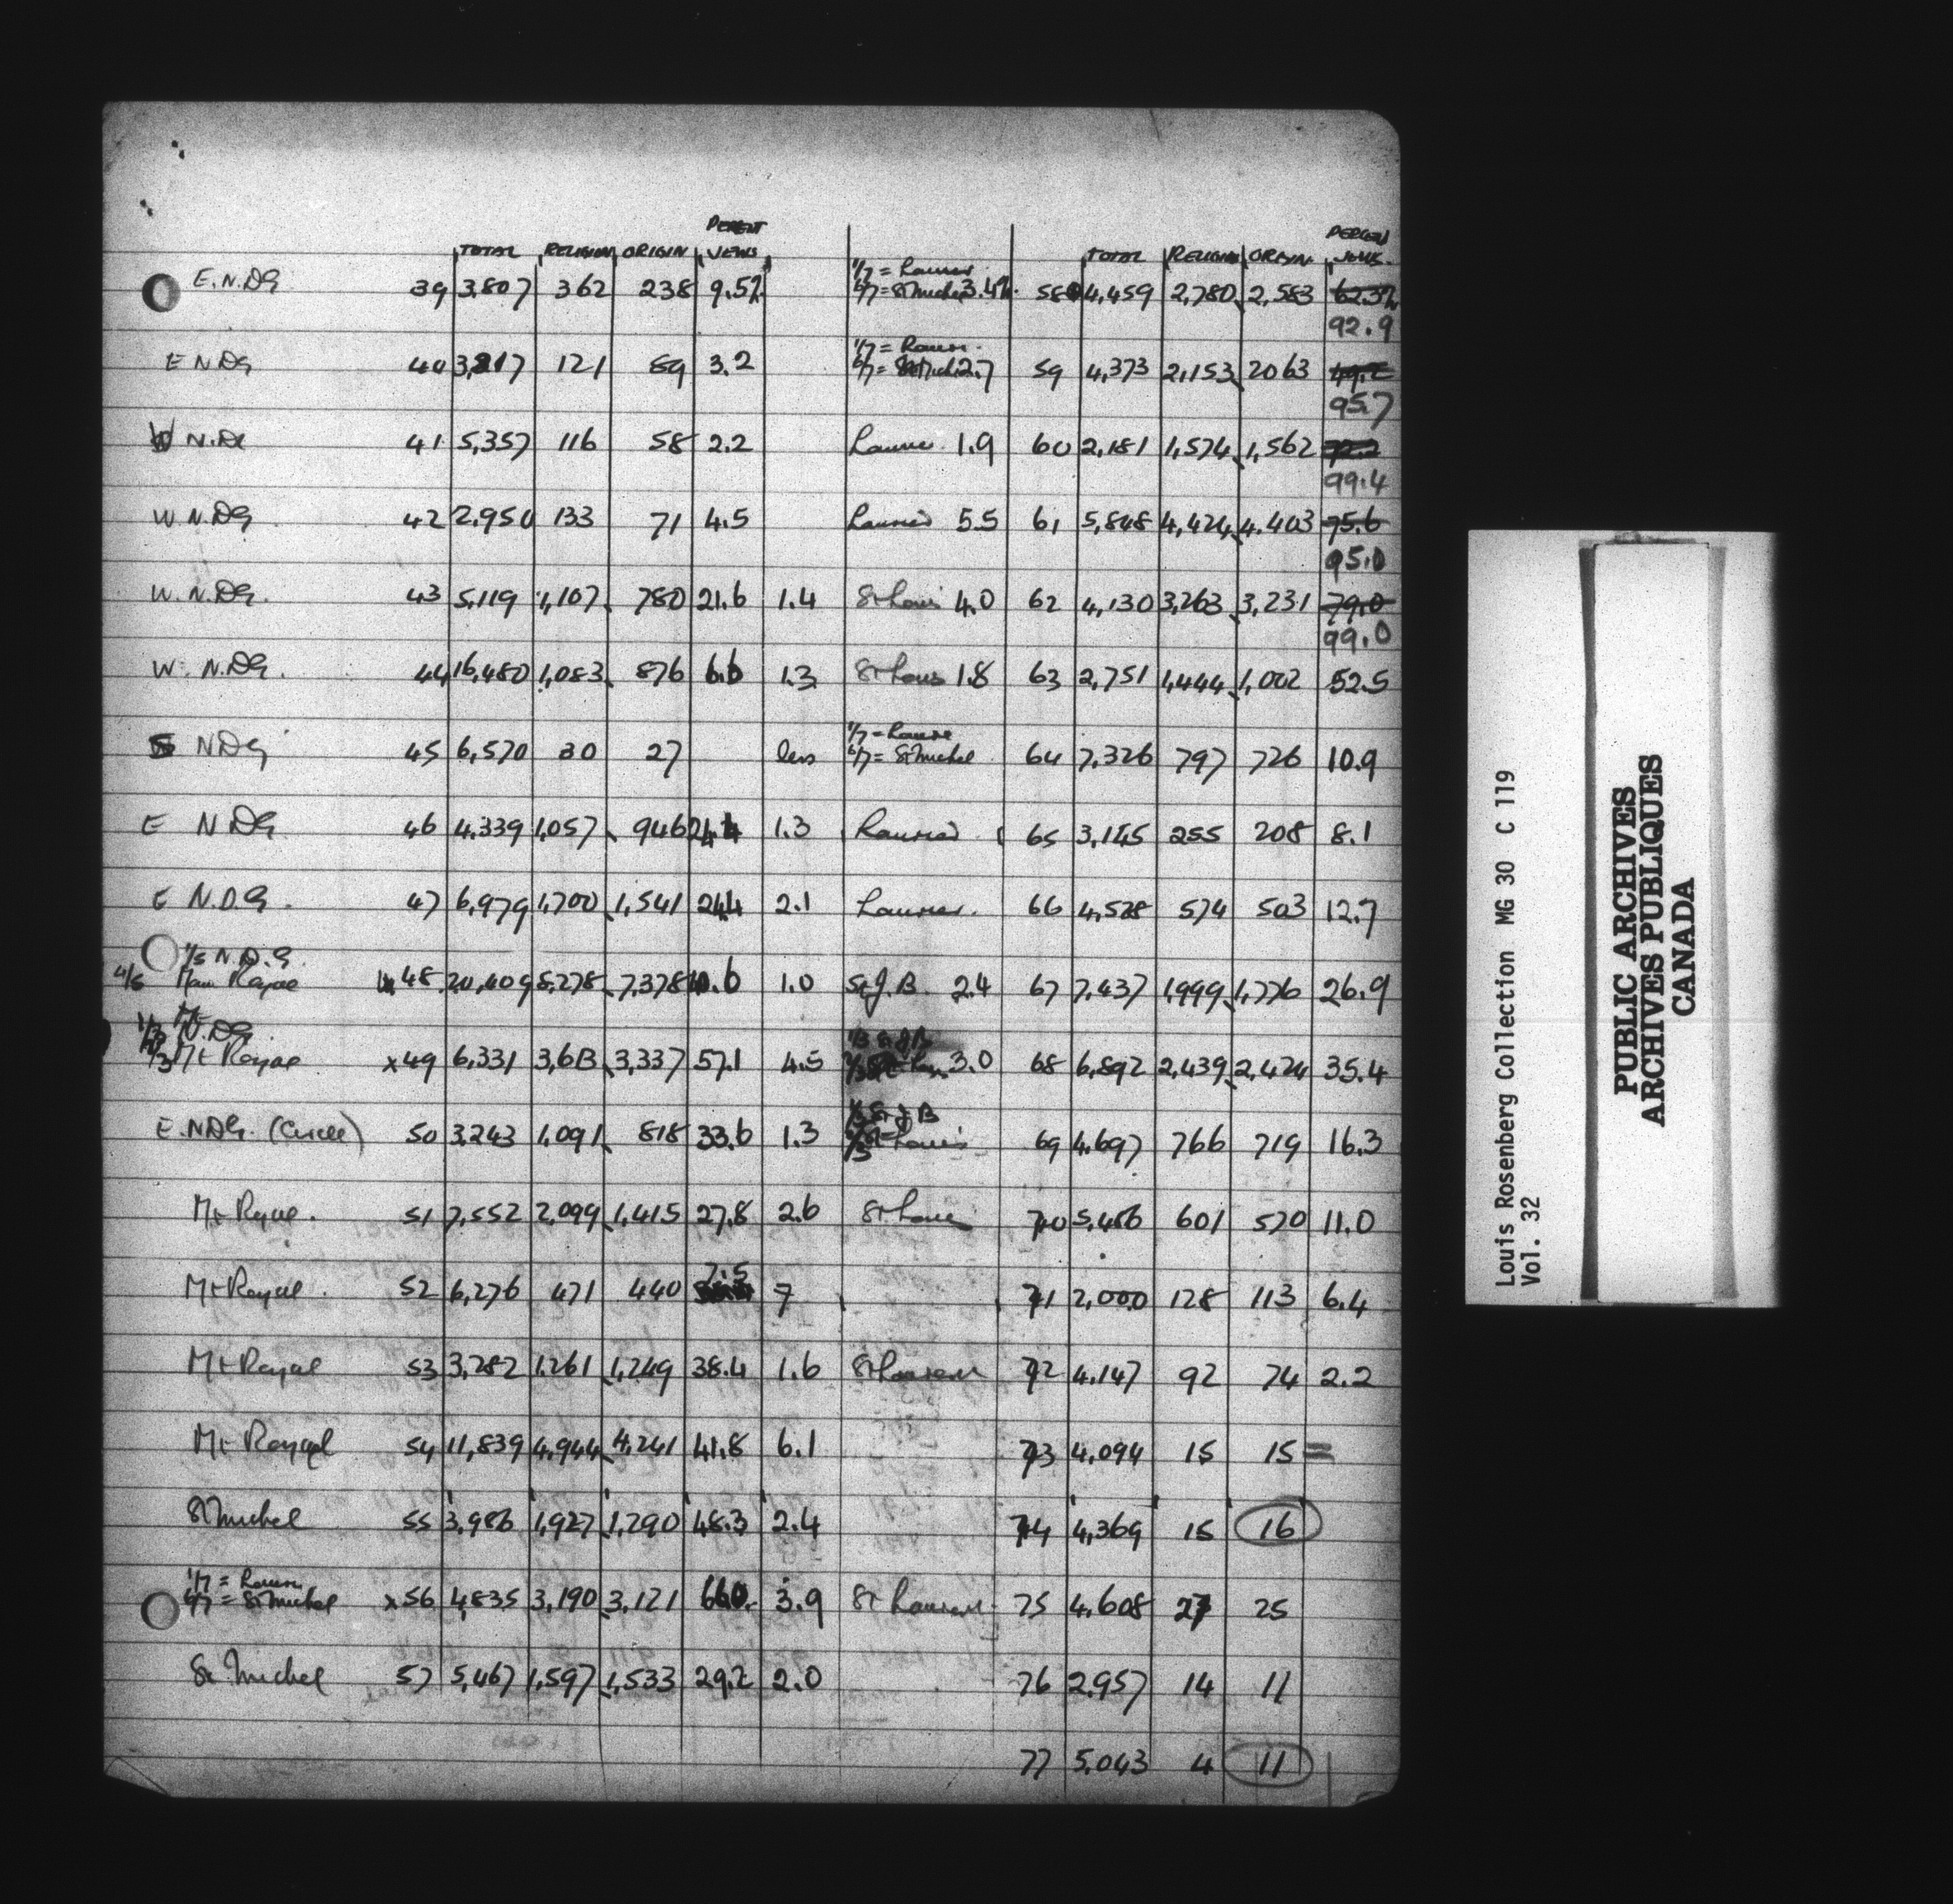 TOTAL RELIGION ORIGIN PERCENT JEWS TOTAL RELIGION ORIGIN PERCEN JEWS.
E.N.DG 39 3,807 362 238 9.5% 1/7 = Laurier 6/7 = St Michel 3.4% 58 4,459 2,780 2,583 62.3%
92.9
E NDG 40 3,817 121 89 3.2 1/7 = Laurier 6/7 = St Michel 2.7 59 4,373 2,153 2063 49.2
95.7
W N.DG 41 5,357 116 58 2.2 Laurier 1.9 60 2,181 1,574 1,562 72.2
99.4
W N.DG. 42 2,950 133 71 4.5 Laurier 5.5 61 5,848 4,424 4,403 75.6
95.0
W. N.DG. 43 5,119 1,107 780 21.6 1.4 St Louis 4.0 62 4,130 3,263 3,231 79.0
99.0
W. N.DG. 44 16,480 1,083 876 6.6 1.3 St Louis 1.8 63 2,751 1,444 1,002 52.5
NDG 45 6,570 30 27 less 1/7 = Laurier 6/7 = St Michel 64 7,326 797 726 10.9
E NDG 46 4,339 1,057 946 24.4 1.3 Laurier 65 3,145 255 208 8.1
E N.D.G. 47 6,979 1,700 1,541 24.4 2.1 Laurier. 66 4,528 574 503 12.7
1/5 N.D.G.
4/5 Mount Royal 48 20,409 8,278 7,378 40.6 1.0 St J.B. 2.4 67 7,437 1,999 1,776 26.9
1/3 N.DG.
2/3 Mt Royal x49 6,331 3,613 3,337 57.1 4.5 1/3 St J B 2/3 St Louis 3.0 68 6,892 2,439 2,424 35.4
E.NDG. (Circle) 50 3,243 1,091 818 33.6 1.3 St J B St Louis 69 4,697 766 719 16.3
Mt Royal. 51 7,552 2,099 1,415 27.8 2.6 St Louis 70 5,456 601 570 11.0
Mt Royal. 52 6,276 471 440 7.5 7 71 2,000 128 113 6.4
Mt Royal 53 3,282 1,261 1,249 38.4 1.6 St Laurent 72 4,147 92 74 2.2
Mt Royal 54 11,839 4,944 4,241 41.8 6.1 73 4,094 15 15 =
St Michel 55 3,986 1,927 1,290 48.3 2.4 74 4,369 15 16
1/7 = Laurier
6/7 = St Michel x56 4,835 3,190 3,121 66.0 3.9 St Laurent 75 4,608 27 25
St. Michel 57 5,467 1,597 1,533 29.2 2.0 76 2,957 14 11
77 5,043 4 11
Louis Rosenberg Collection MG 30 C 119
Vol. 32
PUBLIC ARCHIVES
ARCHIVES PUBLIQUES
CANADA